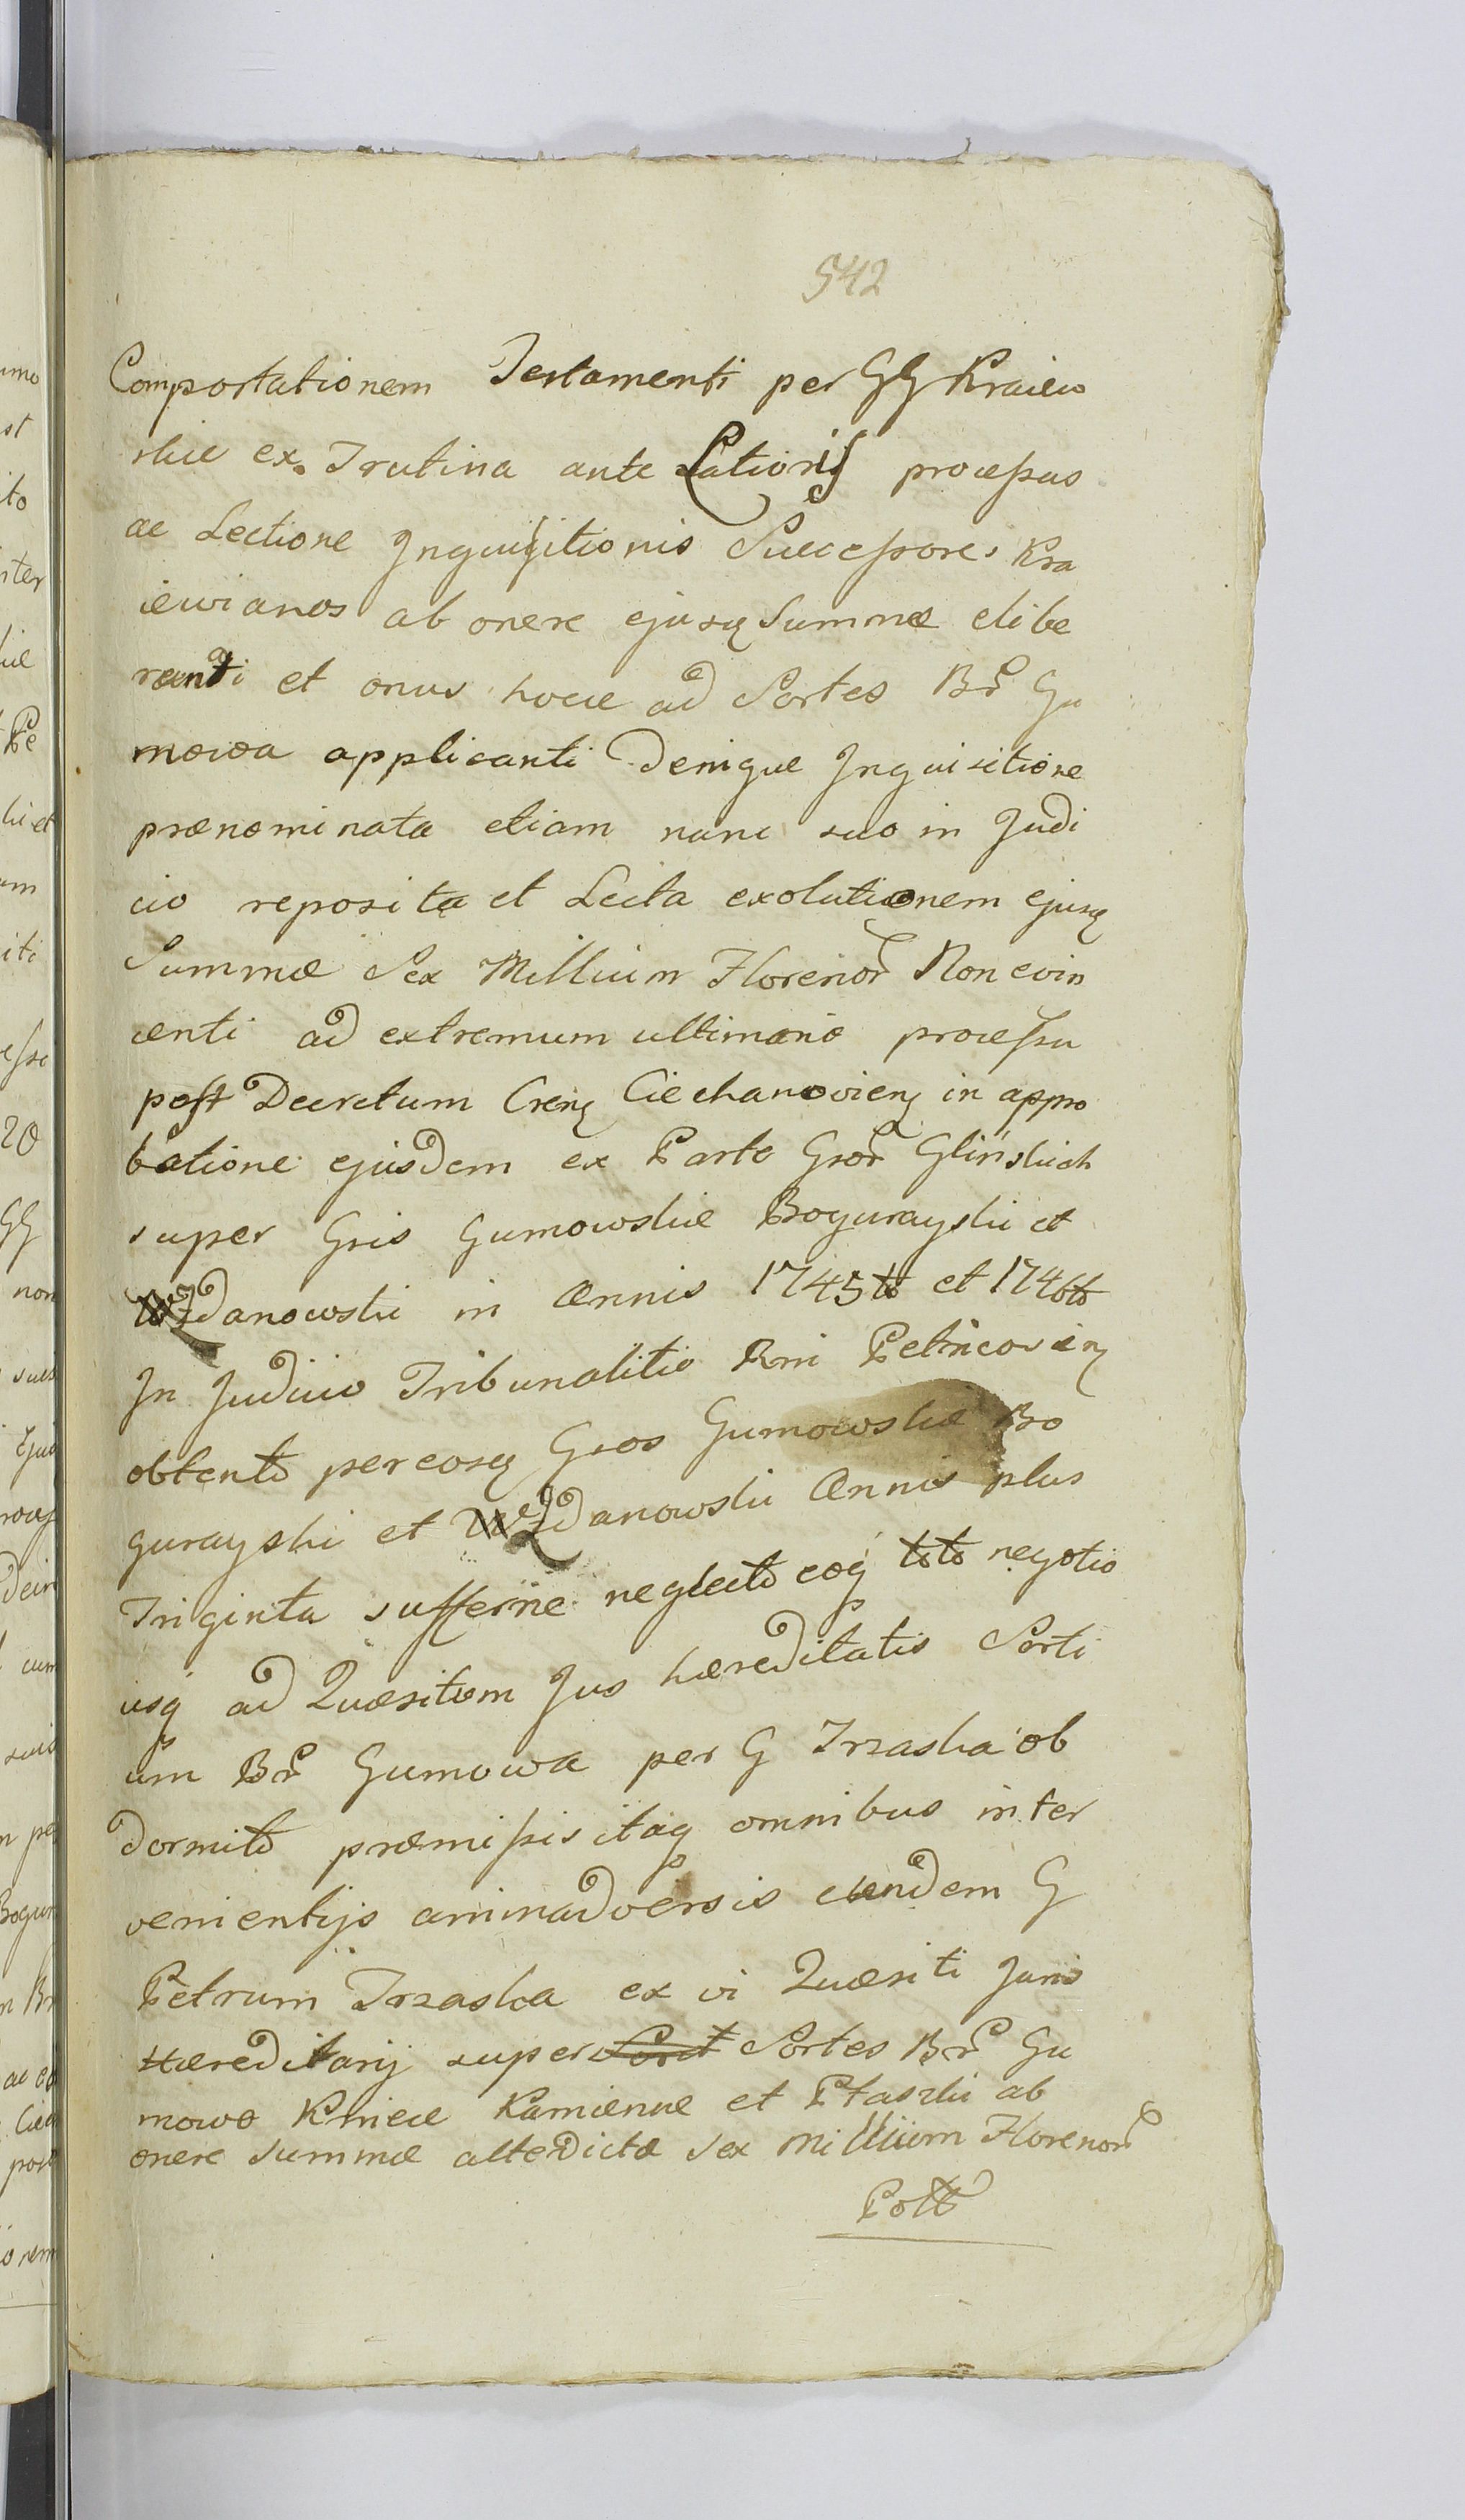 542
Comportationem Testamenti per GG Kraiew
skie ex Trutina ante Lationis processus
ac Lectione Inquisitionis Successores Kra
iewianos ab onere ejusq Summæ elibe
ranti et onus hocce ad Sortes Br Gu
mowa applicanti Denique Inquisitione
prænominata etiam nunc suo in Judi
cio reposita et Lecta exolutionem ejusq
Summæ Sex Millium Florenor Non evin
centi ad extremum ultimario processu
post Decretum Crenq Ciechanovienq in appro
batione ejusdem ex Parte Gror Glińskich
super Gris Gumowskie Bogurayski et
Wżdanowski in Annis 1745to et 1746to
In Judicio Tribunalitio Rni Petricovienq
obtento per eosq Gros Gumowskie Bo
gurayski et Wżdanowski Annis plus
Triginta sufferine neglecto eoq toto negotio
usq ad Quæsitum Jus hæreditatis Sorti
um Br Gumowa per G Trzaska ob
dormito præmissis itaq omnibus inter
venientijs animadversis eundem G
Petrum Trzaska ex vi Quæsiti Juris
Hæreditarij super Sort Sortes Br Gu
mowo Kniece Kamienne et Ptaszki ab
onere summæ altedictæ sex Millium Florenor